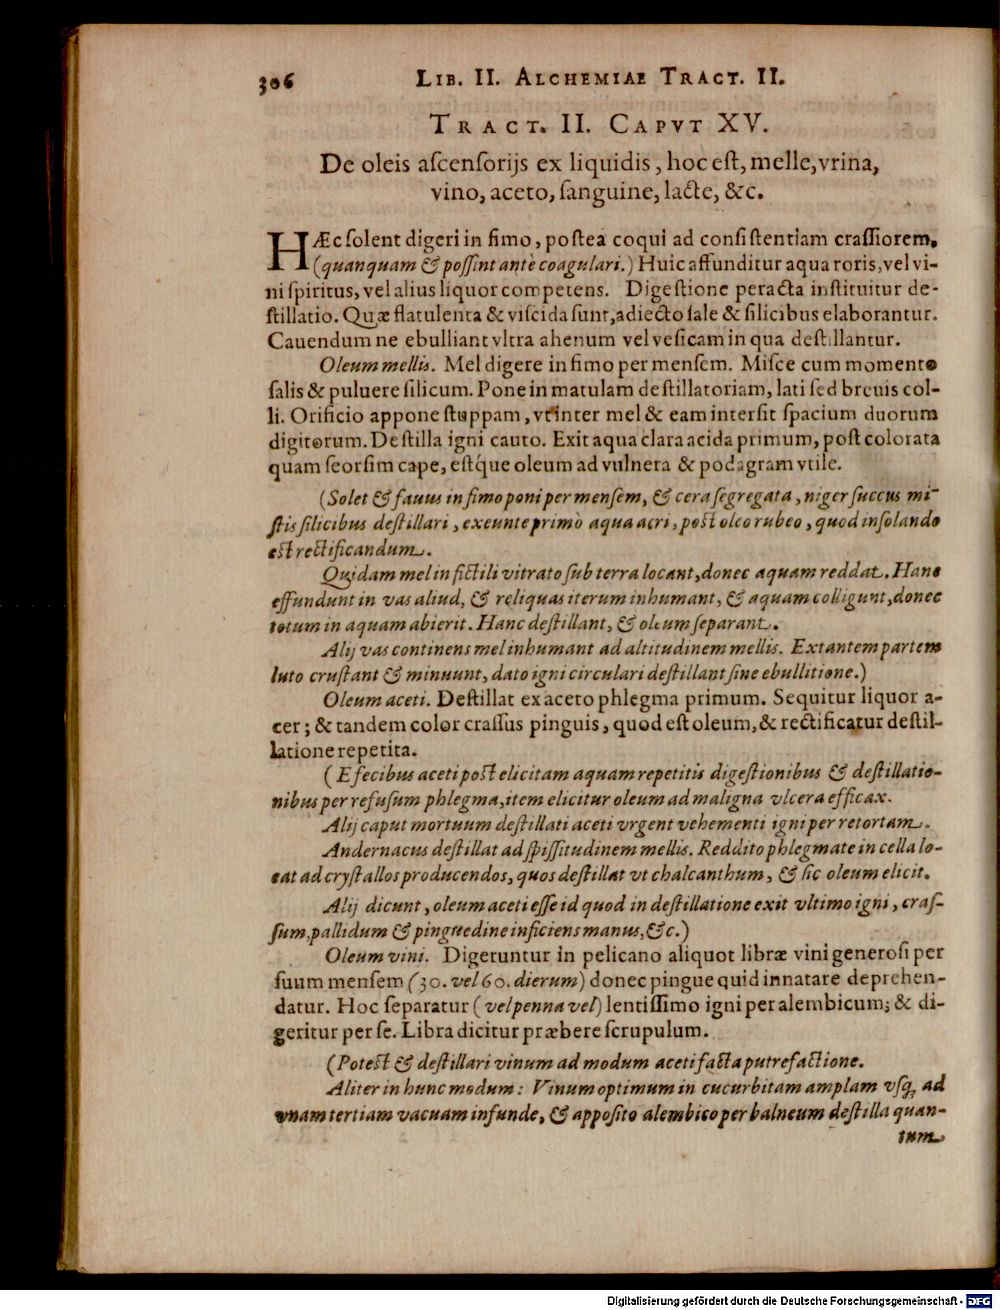 306 LIB. II. ALCHEMIAE TRACT. II.
TRACT. II. CAPVT XV.
De oleis aſcenſorijs ex liquidis, hoc eſt, melle, vrina,
vino, aceto, ſanguine, lacte, &c.
HÆc ſolent digeri in fimo, poſtea coqui ad conſiſtentiam craſſiorem,
(quanquam & poſſint antè coagulari.) Huic affunditur aqua roris, vel vi-
ni ſpiritus, vel alius liquor competens. Digeſtione peracta inſtituitur de-
ſtillatio. Quæ flatulenta & viſcida ſunt, adiecto ſale & ſilicibus elaborantur.
Cauendum ne ebulliant vltra ahenum vel veſicam in qua deſtillantur.
Oleum mellis. Mel digere in fimo per menſem. Miſce cum momento
ſalis & puluere ſilicum. Pone in matulam deſtillatoriam, lati ſed breuis col-
li. Orificio appone ſtuppam, vt inter mel & eam interſit ſpacium duorum
digitorum. Deſtilla igni cauto. Exit aqua clara acida primum, poſt colorata
quam ſeorſim cape, eſtq́ue oleum ad vulnera & podagram vtile.
(Solet & fauus in fimo poni per menſem, & cera ſegregata, niger ſuccus mi-
ſtis ſilicibus deſtillari, exeunte primò aqua acri, pòst oleo rubeo, quod inſolando
est rectificandum.
Quidam mel in fictili vitrato ſub terra locant, donec aquam reddat. Hanc
effundunt in vas aliud, & reliquas iterum inhumant, & aquam colligunt, donec
totum in aquam abierit. Hanc deſtillant, & oleum ſeparant.
Alij vas continens mel inhumant ad altitudinem mellis. Extantem partem
luto cruſtant & minuunt, dato igni circulari deſtillant ſine ebullitione.)
Oleum aceti. Deſtillat ex aceto phlegma primum. Sequitur liquor a-
cer; & tandem color craſſus pinguis, quod eſt oleum, & rectificatur deſtil-
latione repetita.
(E fecibus aceti post elicitam aquam repetitis digeſtionibus & deſtillatio-
nibus per refuſum phlegma, item elicitur oleum ad maligna vlcera efficax.
Alij caput mortuum deſtillati aceti vrgent vehementi igni per retortam.
Andernacus deſtillat ad ſpiſſitudinem mellis. Reddito phlegmate in cella lo-
cat ad cryſtallos producendos, quos deſtillat vt chalcanthum, & ſic oleum elicit.
Alij dicunt, oleum aceti eſſe id quod in deſtillatione exit vltimo igni, craſ-
ſum, pallidum & pinguedine inficiens manus, &c.)
Oleum vini. Digeruntur in pelicano aliquot libræ vini generoſi per
ſuum menſem (30. vel 60. dierum) donec pingue quid innatare deprehen-
datur. Hoc ſeparatur (vel penna vel) lentiſſimo igni per alembicum; & di-
geritur per ſe. Libra dicitur præbere ſcrupulum.
(Potest & deſtillari vinum ad modum aceti facta putrefactione.
Aliter in hunc modum: Vinum optimum in cucurbitam amplam vſq; ad
vnam tertiam vacuam infunde, & appoſito alembico per balneum deſtilla quan-
tum
Digitalisierung gefördert durch die Deutsche Forschungsgemeinschaft - DFG